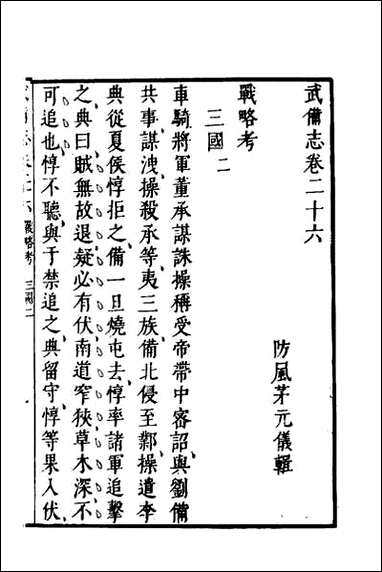 武備志卷二十六
防風茅元儀輯
戰略考
三國二
車騎將軍董承謀誅操稱受帝帶中審詔與劉備
共事謀洩操殺承等夷三族備北侵至鄴操遣李
典從夏侯惇拒之備一旦燒屯去惇率諸軍追擊
之典曰賊無故退疑必有伏南道窄狹草木深不
可追也惇不聽與于禁追之典留守惇等果入伏
戰略考 三國二